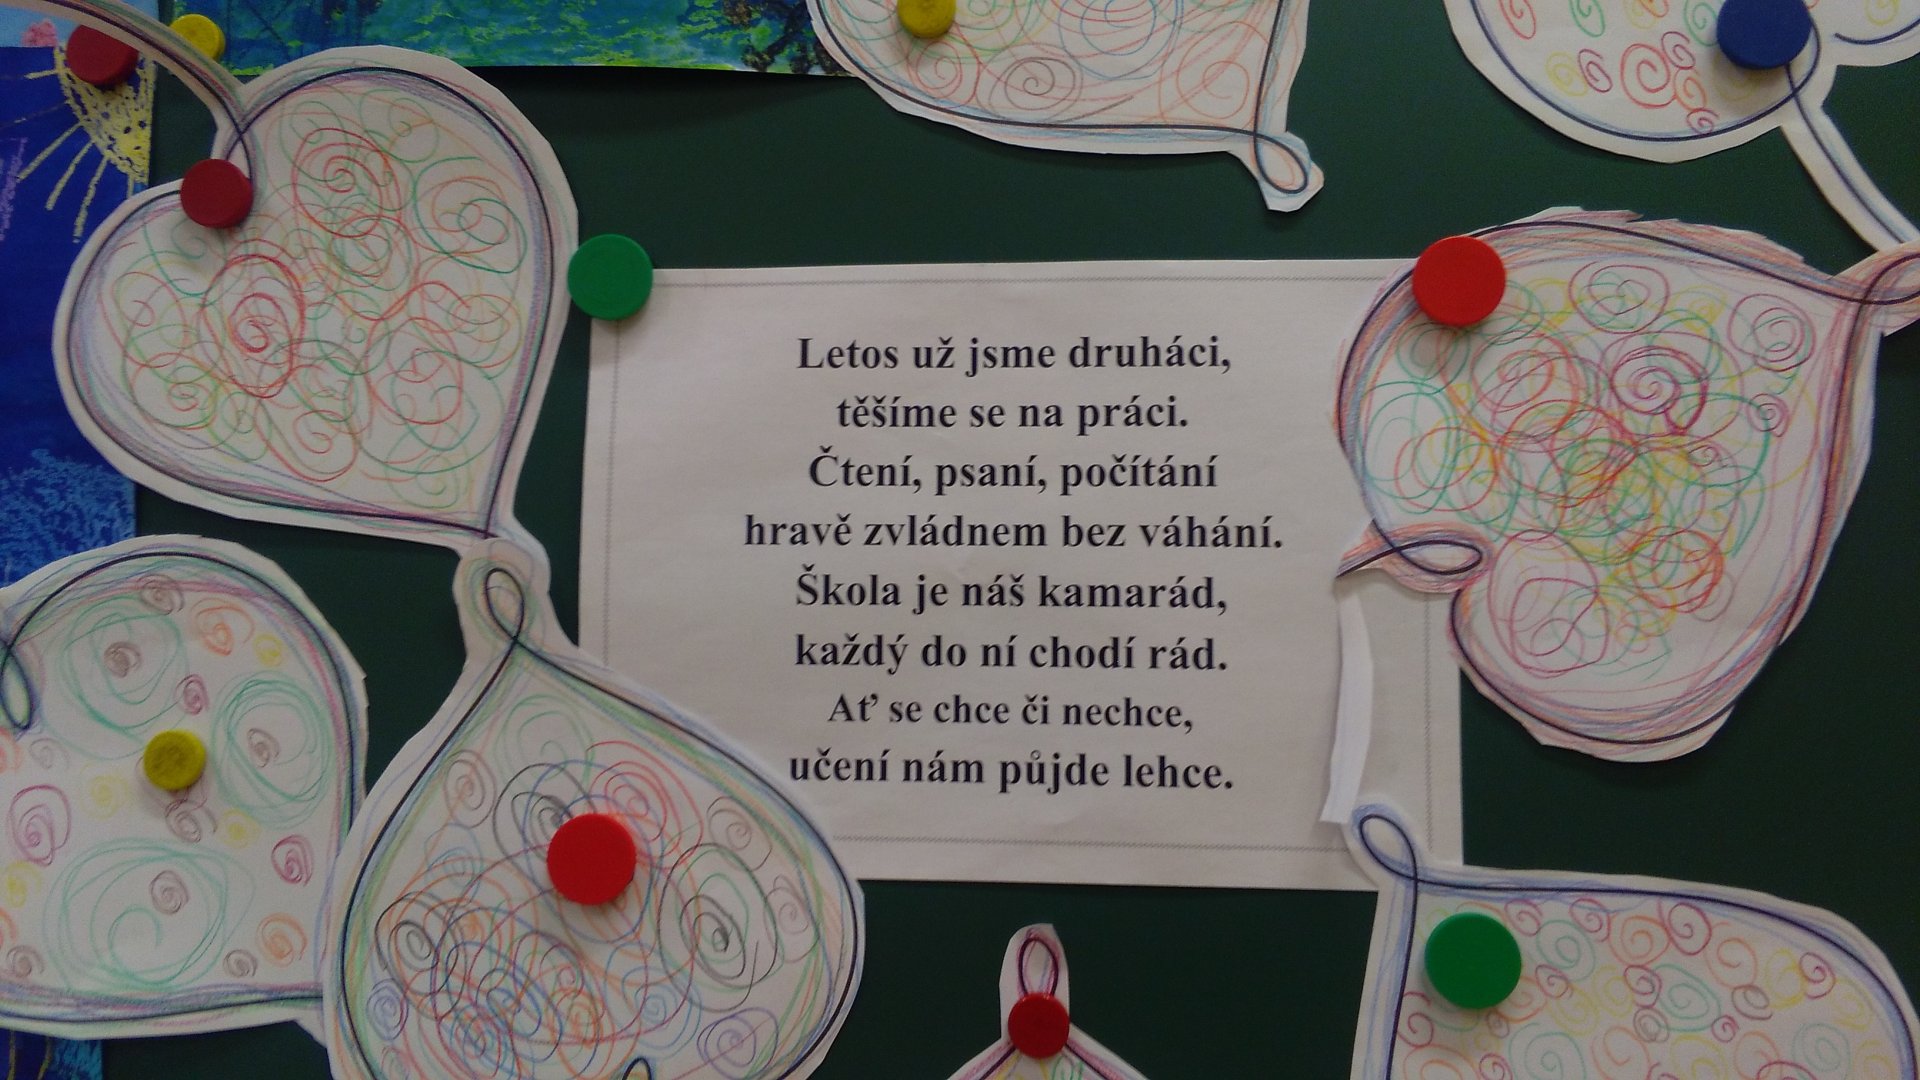 Letos už jsme druháci,
těšíme se na práci.
Čtení, psaní, počítání
hravě zvládnem bez váhání.
Škola je náš kamarád,
každý do ní chodí rád.
Ať se chce či nechce,
učení nám půjde lehce.